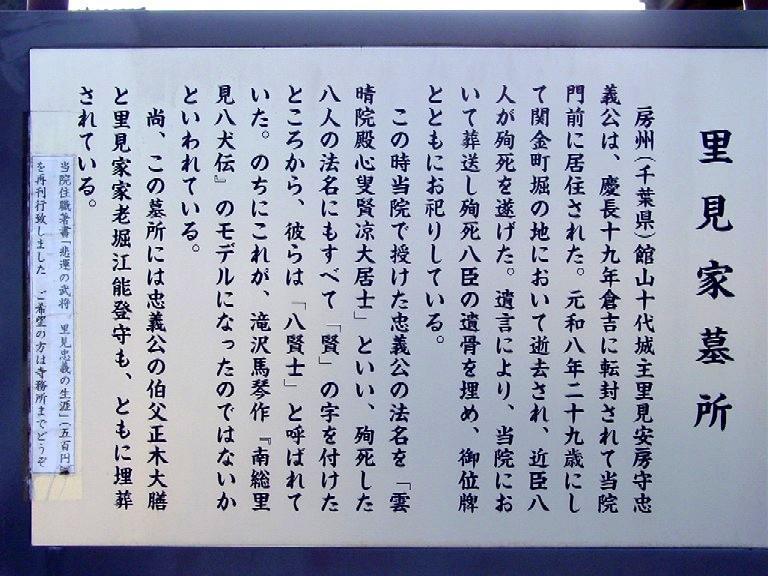 里見家墓所
房州(千葉県)館山十代城主里見安房守忠
義公は、慶長十九年倉吉に転封されて当院
門前に居住された。元和八年二十九歳にし
て関金町堀の地において逝去され、近臣八
人が殉死を遂げた。遺言により、当院にお
いて葬送し殉死八臣の遺骨を埋め、御位牌
とともにお祀りしている。
この時当院で授けた忠義公の法名を「雲
晴院殿心叟賢凉大居士」といい、殉死した
八人の法名にもすべて「賢」の字を付けた
ところから、彼らは「八賢士」と呼ばれて
いた。のちにこれが、滝沢馬琴作『南総里
見八犬伝』のモデルになったのではないか
といわれている。
尚、この墓所には忠義公の伯父正木大膳
と里見家家老堀江能登守も、ともに埋葬
されている。
当院住職著書「悲運の武将 里見忠義の生涯」(五百円)
を再刊行致しました ご希望の方は寺務所までどうぞ